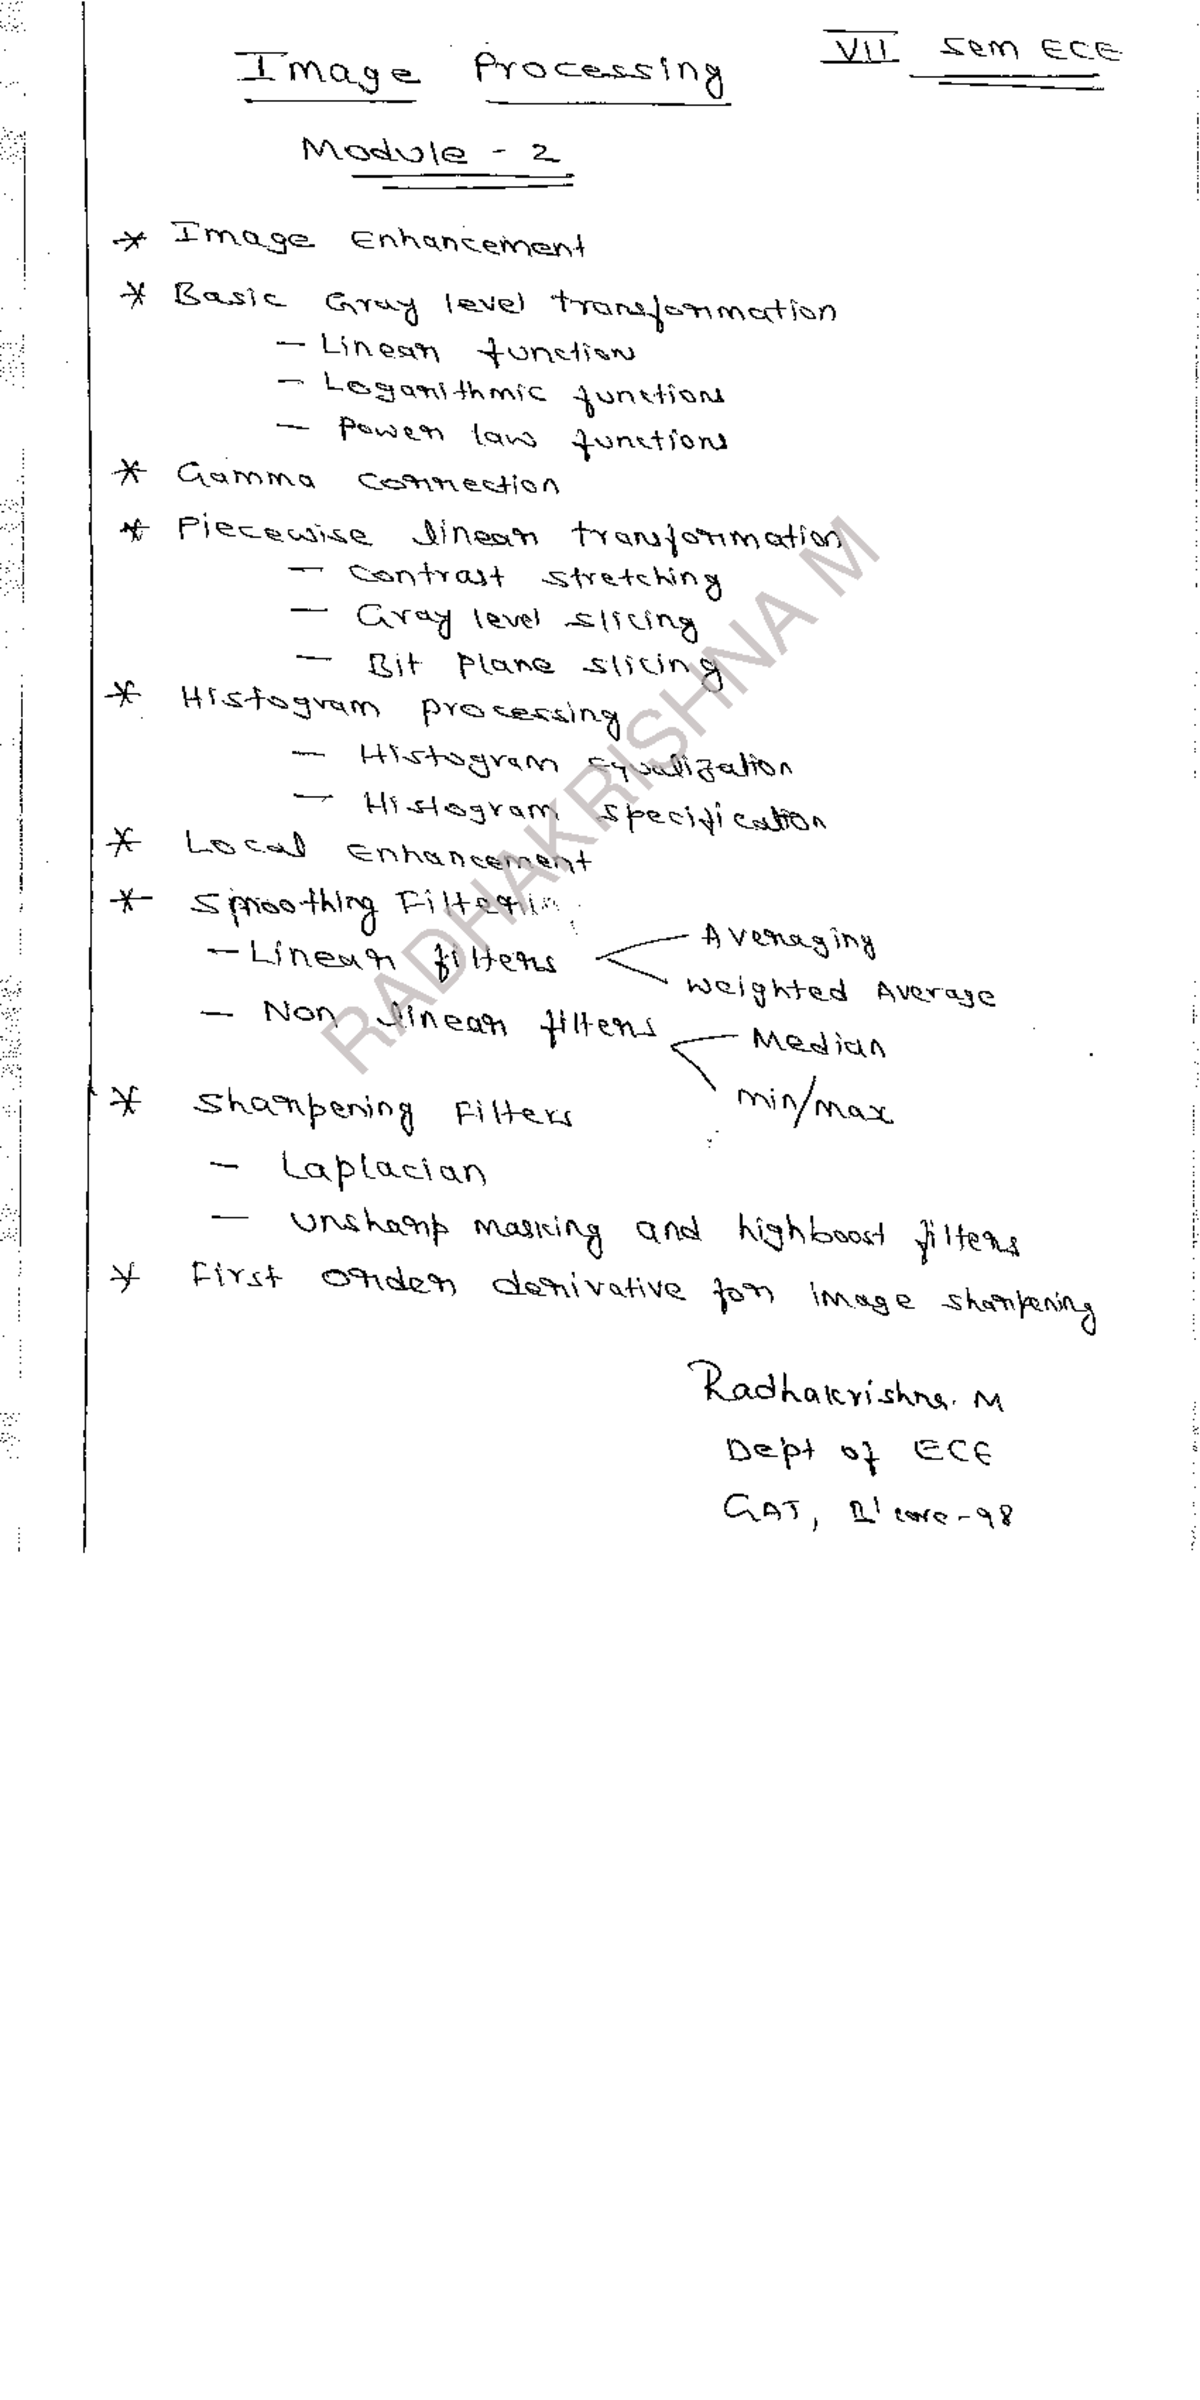 VII Sem ECE
Image Processing
Module - 2
* Image Enhancement
* Basic Gray level transformation
— Linear function
— Logarithmic functions
— Power law functions
* Gamma correction
* Piecewise linear transformation
— Contrast stretching
— Gray level slicing
— Bit plane slicing
* Histogram processing
— Histogram Equalization
— Histogram specification
* Local Enhancement
* Smoothing Filterin
— Linear filters
Averaging
Weighted Average
— Non linear filters
Median
min/max
* Sharpening Filters
— Laplacian
— Unsharp masking and highboost filters
* First order derivative for image sharpening
Radhakrishna. M
Dept of ECE
GAT, B'lore-98
RADHAKRISHNA M